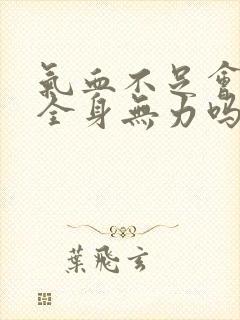 氣血不足會
全身無力嗎
葉飛玄